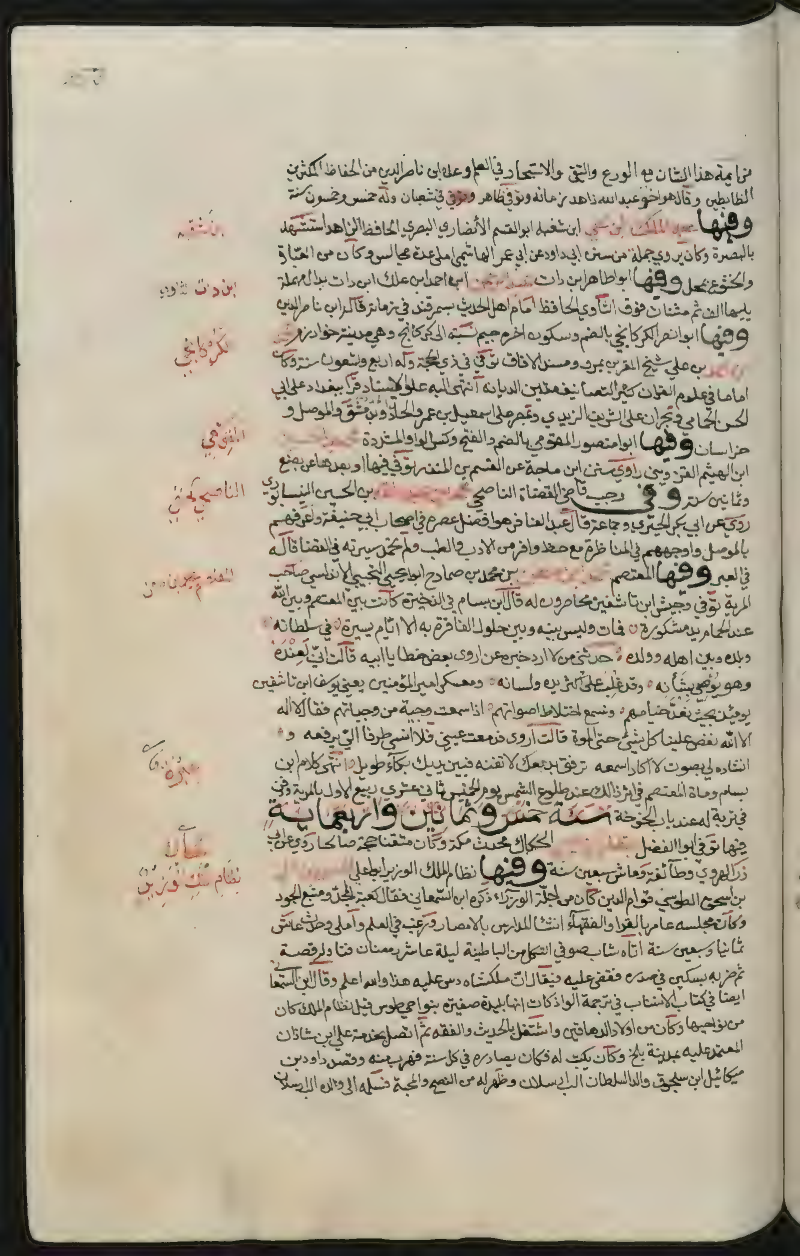 من ايمة هذا الشان مع الورع والتقى والاستبحار في العلم وعده ابن ناصر الدين من الحفاظ المكثرين
وقال هو اخو عبد الله زاهد زمانه وتوفي في ظاهر وتوفي في شعبان وله خمس وخمسون سنة
وفيها عبد الملك بن شعبه ابو القسم الأنصاري البصري الحافظ الزاهد استشهد
بالبصرة وكان يروي جملة من سنن ابي داود عن ابي عمر الهاشمي املى عدة مجالس وكان من العبادة
والخشوع بمحل وفيها ابو طاهر ابن دات ابن احمد ابن علك ابن دات بدال مهملة
يليها الف ثم مثناة فوق الساوي الحافظ امام اهل الحديث بسمرقند في زمانه قاله ابن ناصر الدين
وفيها ابو نصر الكركانجي بالضم وسكون اخره جيم نسبة الى كركانج وهي مدينة خوارزم
بن علي شيخ المقريين بمرو ومسند الافاق توفي في ذي الحجة وله اربع وتسعون سنة وكان
اماما في علوم القران كثير التصانيف متين الديانة انتهى اليه علو الاسناد قرا ببغداد على ابي
الحسن الحمامي وبحران على الشريف الزيدي وبمصر على اسمعيل بن عمر الحداد وبدمشق والموصل و
خراسان وفيها ابو منصور المقومي بالضم والفتح وكسر الواو المشددة محمد بن الحسين
ابن الهيثم القزويني راوي سنن ابن ماجة عن القسم بن المنذر توفي فيها او بعدها عن بضع
وثمانين سنة وفي رجب قاضي القضاة الناصحي محمد بن عبد الله بن الحسين النيسابوري
روى عن ابي بكر الحيري وجماعة قال عبد الغافر هو افضل عصره في اصحاب ابي حنيفة واعرفهم
واوجههم في المناظرة مع حظ وافر من الادب والطب ولم تحمد سيرته في القضا قاله
في العبر وفيها المعتصم محمد بن معن بن محمد بن صمادح ابو يحيى التجيبي الاندلسي صاحب
المرية توفي وجيش ابن تاشفين محاصرون له قال ابن بسام في الذخيرة كانت بين المعتصم وبين الله
عند الحمام يد مشكورة فمات وليس بينه وبين حلول الفاقرة به الا ايام يسيرة في سلطانه
وبلده وبين اهله وولده حدثني من لا ارد خبره عن اروى بعض حظايا ابيه قالت اني لعنده
وهو يوصي بشأنه وقد غلب على اكثر يده ولسانه ومعسكر امير المؤمنين يعني يوسف ابن تاشفين
يومئذ بحيث نعد خيامهم ونسمع اختلاط اصواتهم اذ سمعت وجبة من وجباتهم فقال لا اله
الا الله نغص علينا كل شيء حتى الموت قالت اروى فدمعت عيني فلا انسى طرفا الي يرفعه و
انشاده لي بصوت لا اكاد اسمعه ترفق بدمعك لا تفنه فبين يديك بكاء طويل انتهى كلام ابن
بسام ومات المعتصم في اثر ذلك عند طلوع الشمس يوم الخميس ثاني عشري ربيع الاول بالمرية ودفن
في تربة له عند باب الخوخة سنة خمس وثمانين واربعماية
فيها توفي ابو الفضل الحكاك محدث مكة وكان متقنا حجة صالحا روى عن ابي
ذر الهروي وطائفة وعاش سبعين سنة وفيها نظام الملك الوزير ابو علي
بن اسحق الطوسي قوام الدين كان من جلة الوزراء ذكره ابن السمعاني فقال كعبة المجد ومنبع الجود
وكان مجلسه عامرا بالقرا والفقهاء انشا المدارس بالامصار ورغب في العلم واملى وحدث عاش
ثمانيا وسبعين سنة اتاه شاب صوفي الشكل من الباطنية ليلة عاشر رمضان فناوله قصة
ثم ضربه بسكين في صدره فقضى عليه فيقال ان ملكشاه دس عليه هذا والله اعلم وقال ابن السمعاني
ايضا في كتاب الانساب في ترجمة الراذكان انها بليدة صغيرة بنواحي طوس قيل نظام الملك كان
من نواحيها وكان من اولاد الدهاقين واشتغل بالحديث والفقه ثم اتصل بخدمة علي ابن شاذان
المعتمد عليه بمدينة بلخ وكان يكتب له فكان يصادره في كل سنة فهرب منه وقصد داود بن
ميكائيل ابن سلجوق والد السلطان الب ارسلان وظهر له من النصح والمحبة فسلمه الى ولده الب ارسلان
ابن شعبه
ابن دات الساوي
الكركانجي
المقومي
الناصحي
المعتصم
نظام الملك الوزير